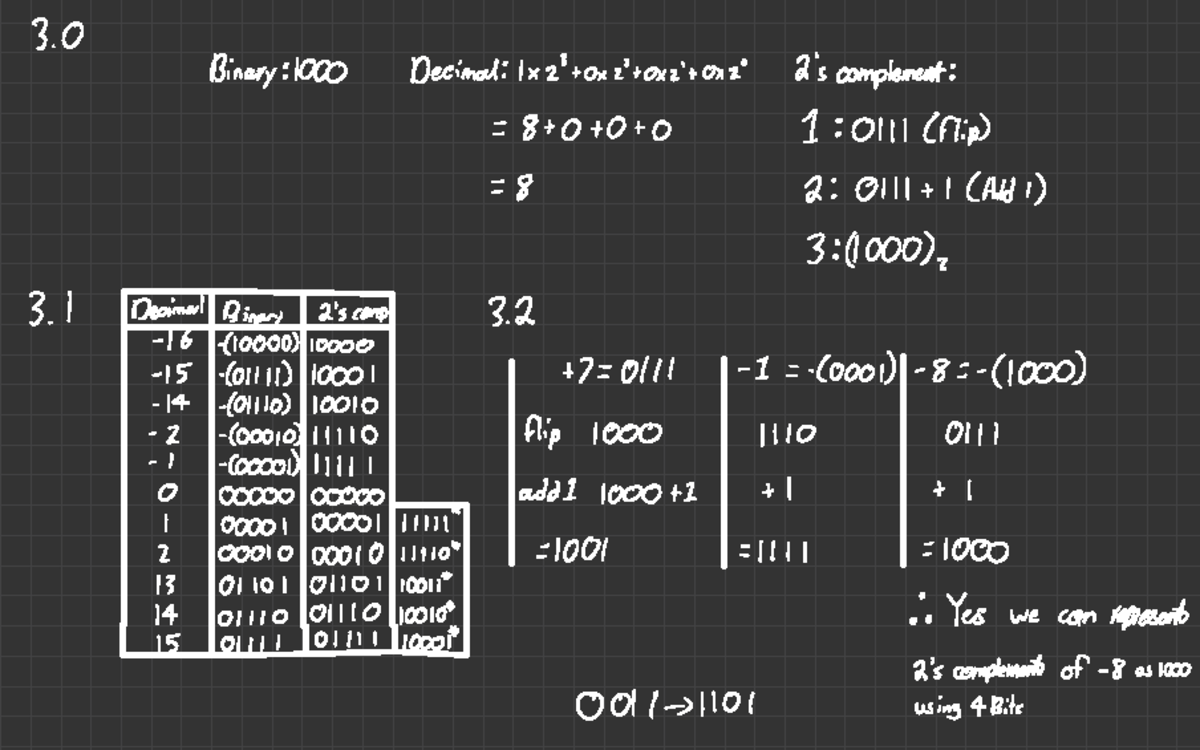 3.0
Binary: 1000
Decimal: 1×2³+0×2²+0×2¹+0×2⁰
= 8+0+0+0
= 8
2's complement:
1: 0111 (flip)
2: 0111 + 1 (Add 1)
3: (1000)₂
3.1
Decimal Binary 2's comp
-16 -(10000) 10000
-15 -(01111) 10001
-14 -(01110) 10010
-2 -(00010) 11110
-1 -(00001) 11111
0 00000 00000
1 00001 00001 11111*
2 00010 00010 11110*
13 01101 01101 10011*
14 01110 01110 10010*
15 01111 01111 10001*
3.2
+7 = 0111
flip 1000
add 1 1000 +1
=1001
-1 = -(0001)
1110
+ 1
=1111
-8 = -(1000)
0111
+ 1
=1000
∴ Yes we can represent
2's complement of -8 as 1000
using 4 Bits
0011→1101